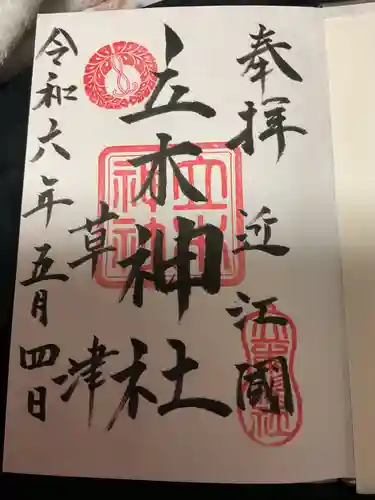 奉拝 近江國
立木神社
草津
令和六年五月四日
立木神社